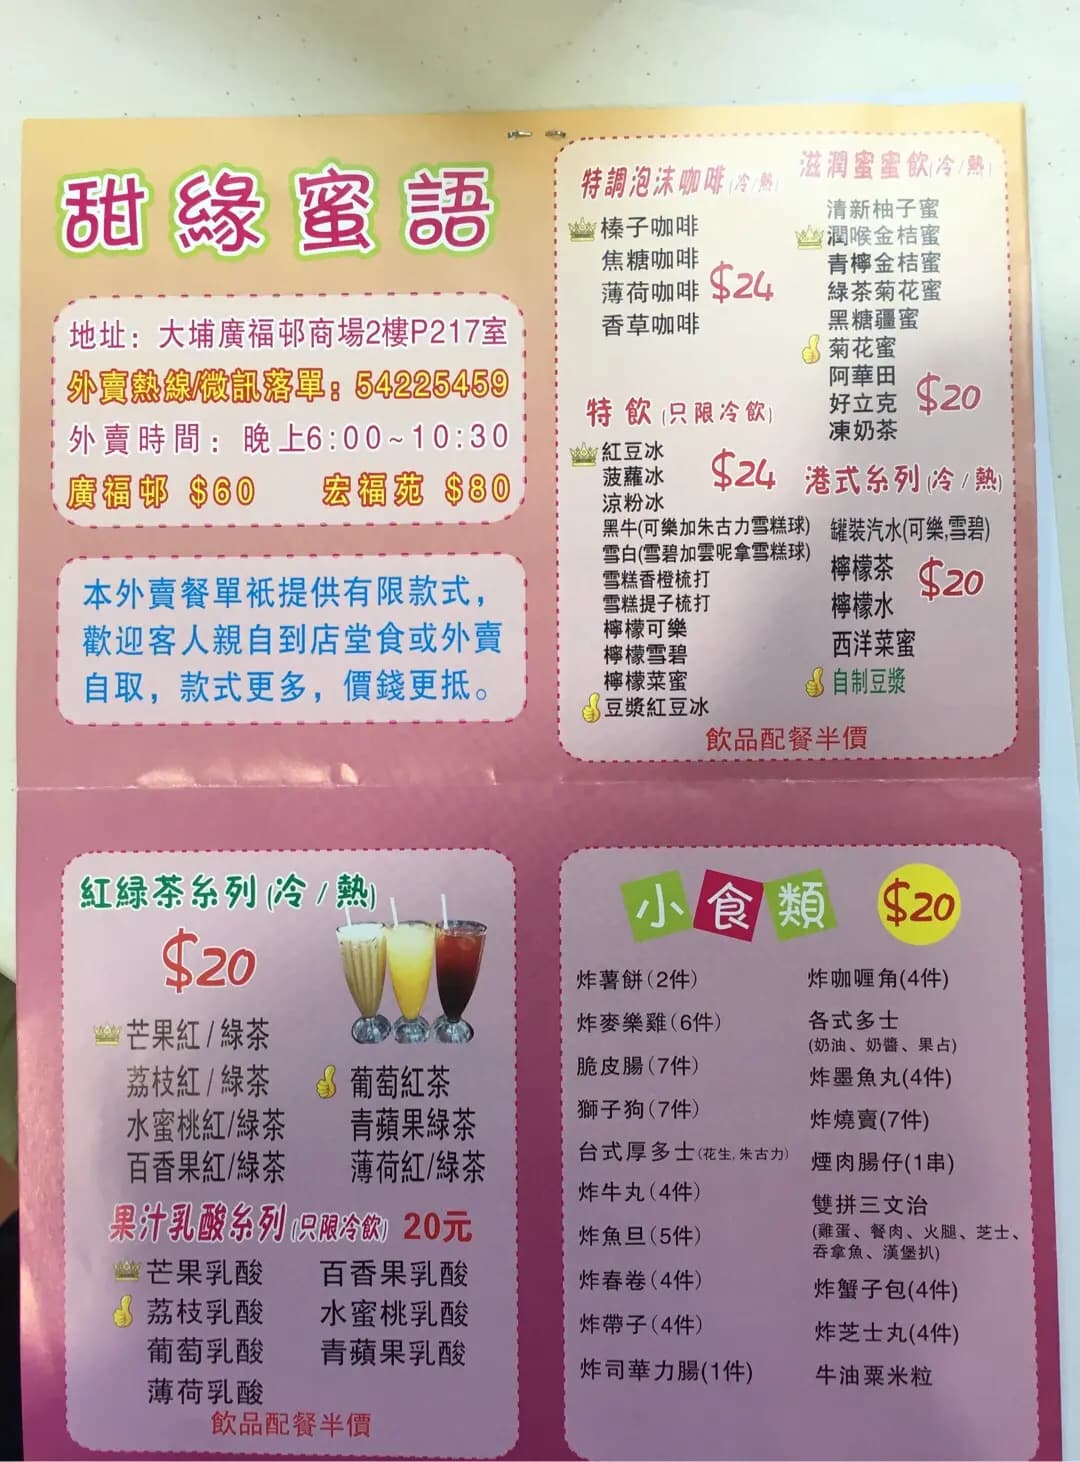 甜緣蜜語
地址：大埔廣福邨商場2樓P217室
外賣熱線/微訊落單：54225459
外賣時間：晚上6:00~10:30
廣福邨 $60 宏福苑 $80
本外賣餐單衹提供有限款式，
歡迎客人親自到店堂食或外賣
自取，款式更多，價錢更抵。
特調泡沫咖啡(冷/熱)
榛子咖啡
焦糖咖啡
薄荷咖啡
香草咖啡
$24
特飲(只限冷飲)
紅豆冰
菠蘿冰
涼粉冰
$24
黑牛(可樂加朱古力雪糕球)
雪白(雪碧加雲呢拿雪糕球)
雪糕香橙梳打
雪糕提子梳打
檸檬可樂
檸檬雪碧
檸檬菜蜜
豆漿紅豆冰
滋潤蜜蜜飲(冷/熱)
清新柚子蜜
潤喉金桔蜜
青檸金桔蜜
綠茶菊花蜜
黑糖疆蜜
菊花蜜
阿華田
好立克
凍奶茶
$20
港式系列(冷/熱)
罐裝汽水(可樂,雪碧)
檸檬茶
檸檬水
$20
西洋菜蜜
自制豆漿
飲品配餐半價
紅綠茶系列(冷/熱)
$20
芒果紅/綠茶
荔枝紅/綠茶
水蜜桃紅/綠茶
百香果紅/綠茶
葡萄紅茶
青蘋果綠茶
薄荷紅/綠茶
果汁乳酸系列(只限冷飲) 20元
芒果乳酸
荔枝乳酸
葡萄乳酸
薄荷乳酸
百香果乳酸
水蜜桃乳酸
青蘋果乳酸
飲品配餐半價
小食類 $20
炸薯餅(2件)
炸麥樂雞(6件)
脆皮腸(7件)
獅子狗(7件)
台式厚多士(花生,朱古力)
炸牛丸(4件)
炸魚旦(5件)
炸春卷(4件)
炸帶子(4件)
炸司華力腸(1件)
炸咖喱角(4件)
各式多士
(奶油、奶醬、果占)
炸墨魚丸(4件)
炸燒賣(7件)
煙肉腸仔(1串)
雙拼三文治
(雞蛋、餐肉、火腿、芝士、
吞拿魚、漢堡扒)
炸蟹子包(4件)
炸芝士丸(4件)
牛油粟米粒